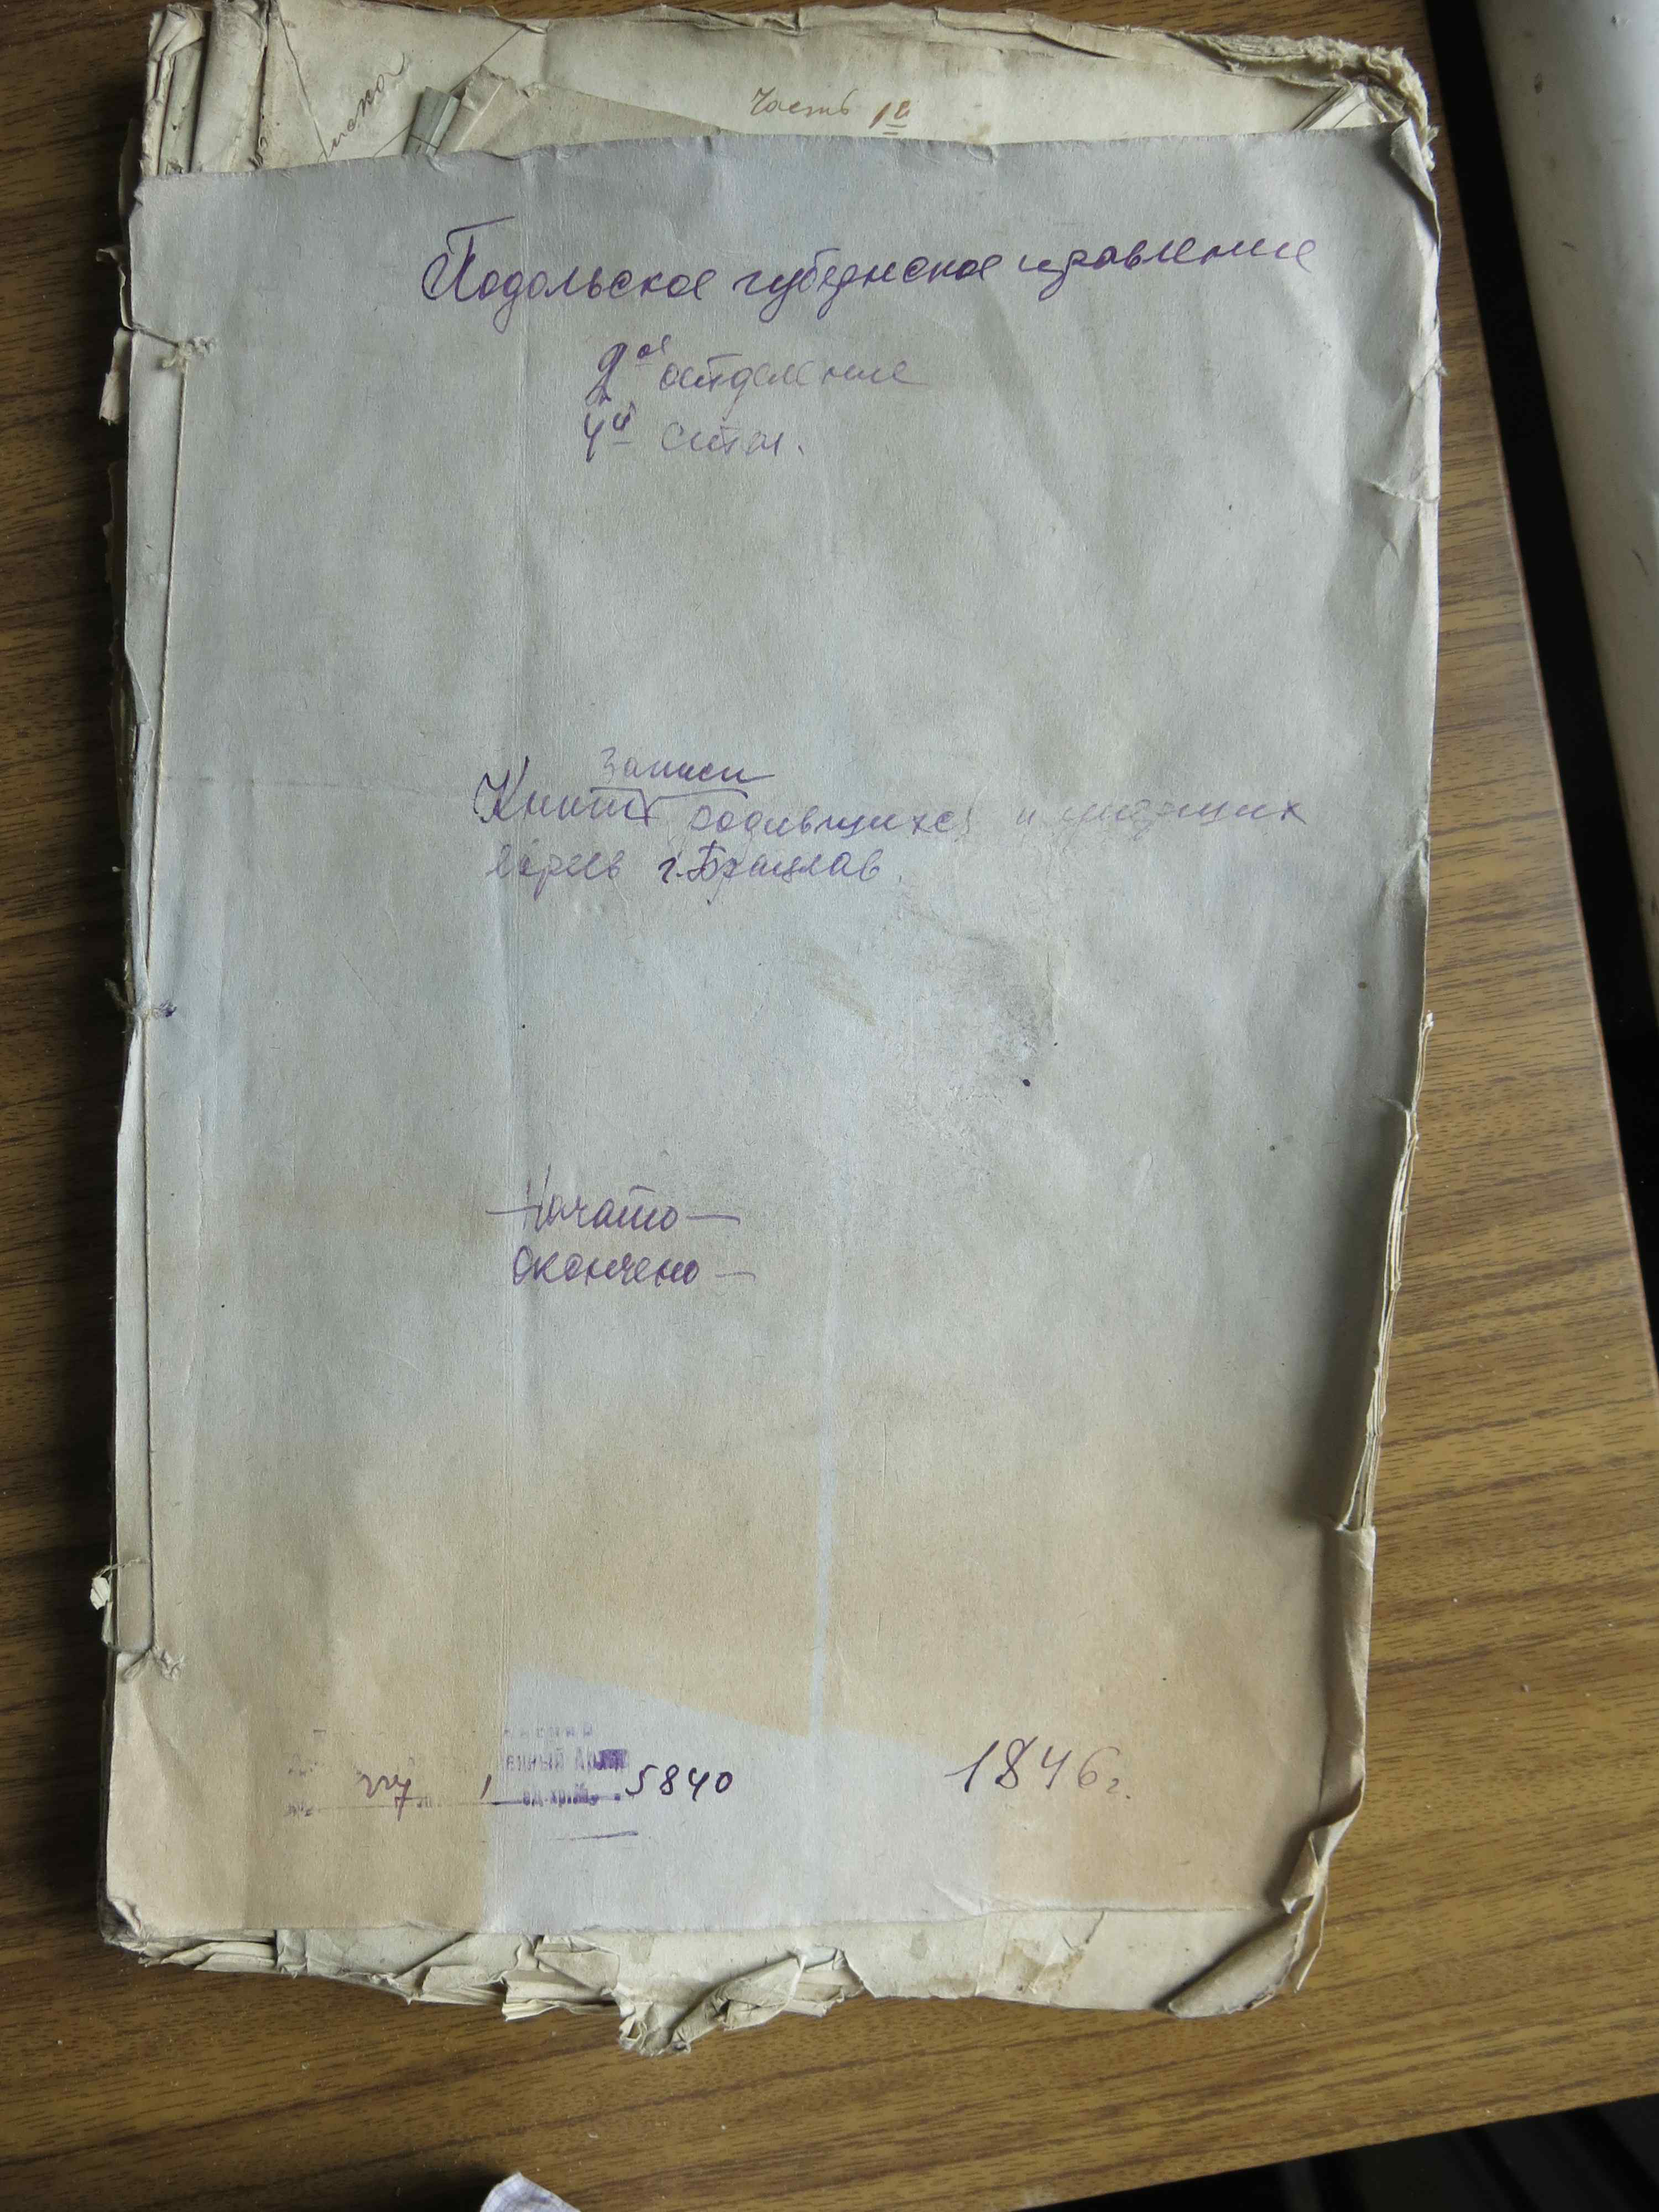 Часть 1я
Подольское губернское правление
2ое отделение
4й стол.
записи
Книга родившихся и умерших
евреев г. Брацлав.
Начато —
Окончено —
енный Архив
227 1 ед.хр.№ 5840
1846 г.